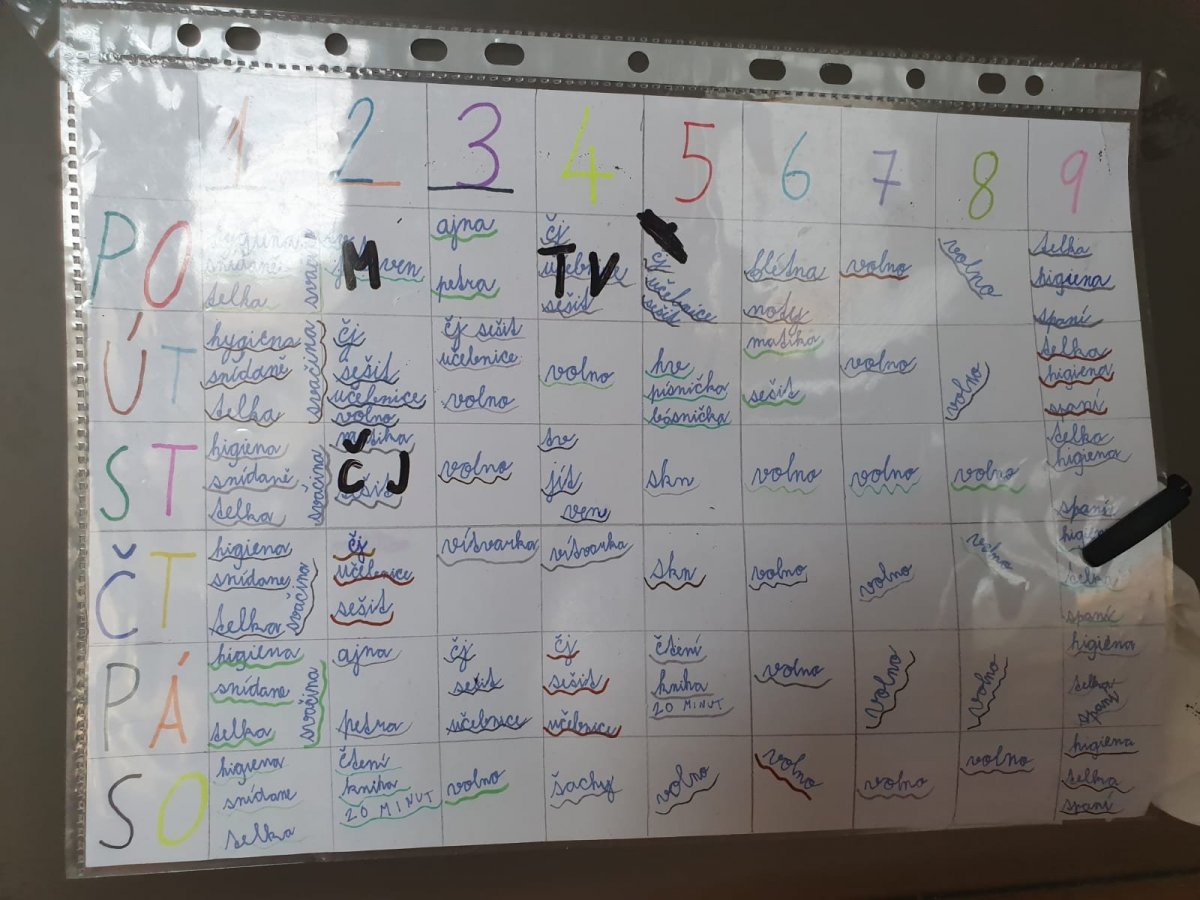 1 2 3 4 5 6 7 8 9
PO
hygiena
snídaně
telka
svačina
M
ven
ajna
petra
čj
učebnice
sešit
TV
čj
učebnice
sešit
flétna
noty
volno
volno
telka
higiena
spaní
ÚT
hygiena
snídaně
telka
svačina
čj
sešit
učebnice
volno
čj sešit
učebnice
volno
volno
hv
písnička
básnička
matika
sešit
volno
volno
telka
higiena
spaní
ST
higiena
snídaně
telka
svačina
matika
sešit
ČJ
volno
tv
jít
ven
skn
volno
volno
volno
telka
higiena
spaní
ČT
higiena
snídane
telka
svačina
čj
učebnice
sešit
vítvarka
vítvarka
skn
volno
volno
volno
higiena
telka
spaní
PÁ
higiena
snídane
telka
svačina
ajna
petra
čj
sešit
učebnice
čj
sešit
učebnice
čtení
kniha
20 MINUT
volno
volno
volno
higiena
telka
spaní
SO
higiena
snídane
telka
čtení
kniha
20 MINUT
volno
šachy
volno
volno
volno
volno
higiena
telka
spaní